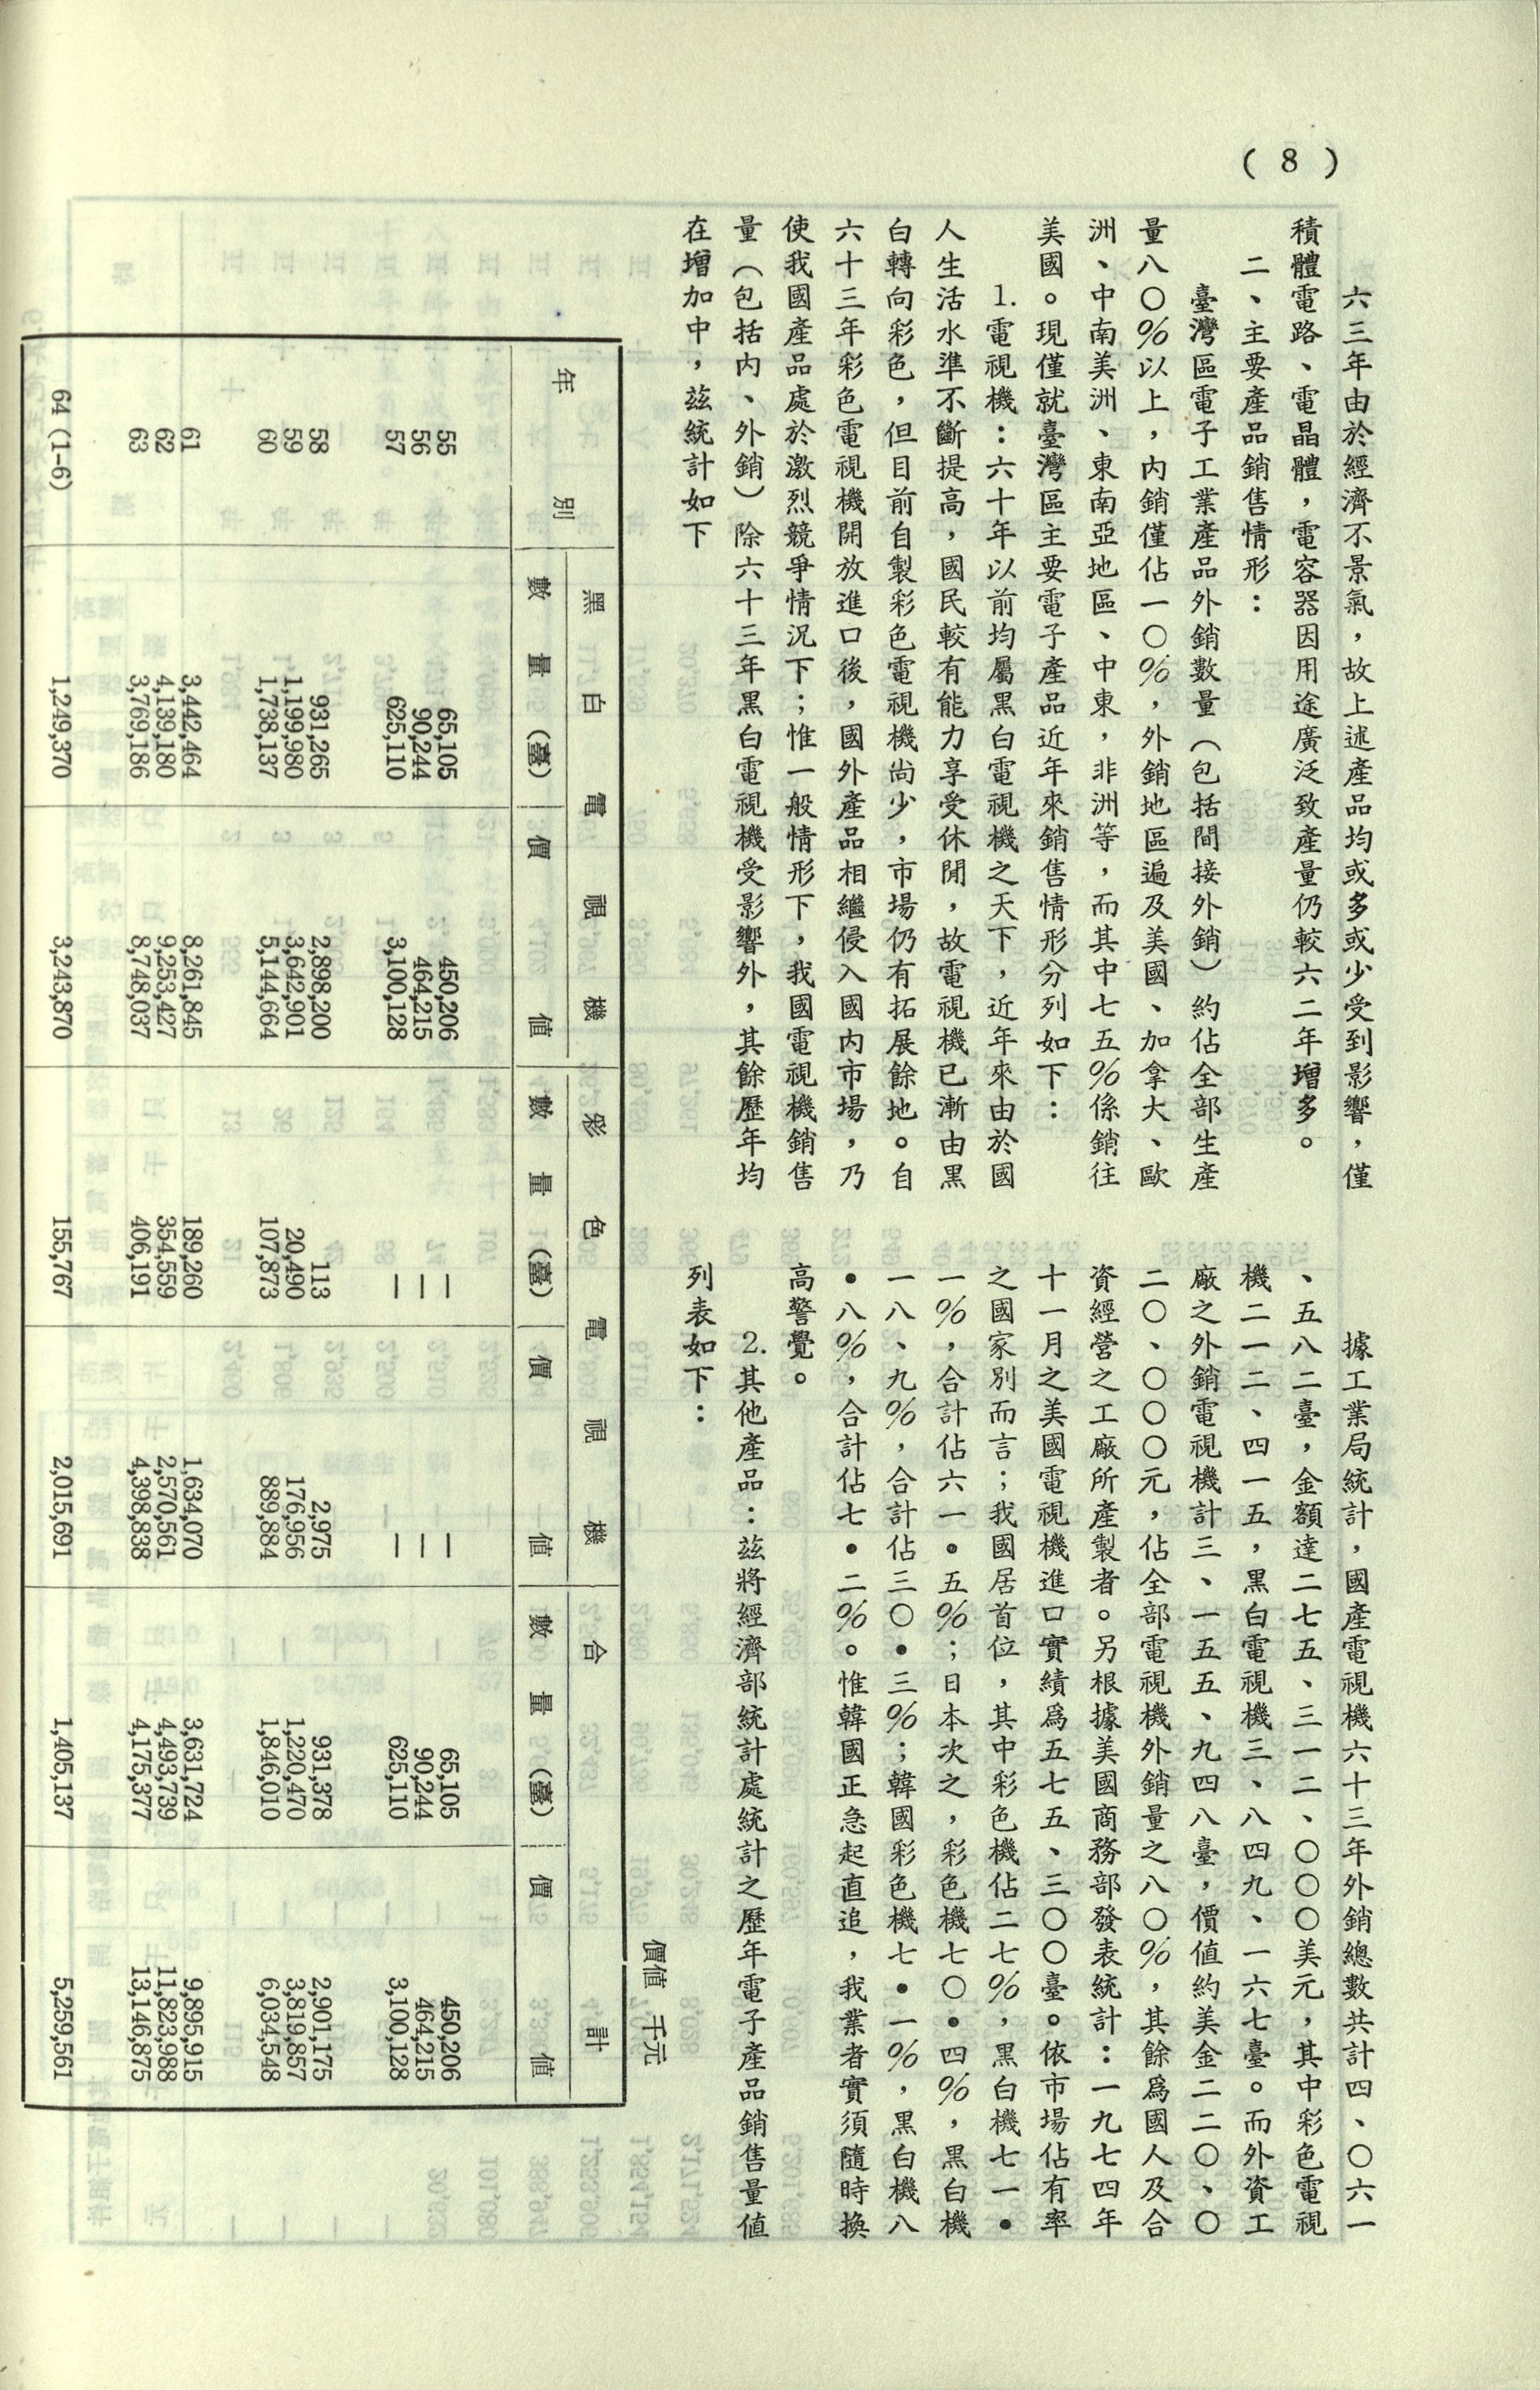 ( 8 )
六三年由於經濟不景氣，故上述產品均或多或少受到影響，僅
積體電路、電晶體，電容器因用途廣泛致產量仍較六二年增多。
二、主要產品銷售情形：
臺灣區電子工業產品外銷數量（包括間接外銷）約佔全部生產
量八〇%以上，內銷僅佔一〇%，外銷地區遍及美國、加拿大、歐
洲、中南美洲、東南亞地區、中東，非洲等，而其中七五%係銷往
美國。現僅就臺灣區主要電子產品近年來銷售情形分列如下：
1.電視機：六十年以前均屬黑白電視機之天下，近年來由於國
人生活水準不斷提高，國民較有能力享受休閒，故電視機已漸由黑
白轉向彩色，但目前自製彩色電視機尚少，市場仍有拓展餘地。自
六十三年彩色電視機開放進口後，國外產品相繼侵入國內市場，乃
使我國產品處於激烈競爭情況下；惟一般情形下，我國電視機銷售
量（包括內、外銷）除六十三年黑白電視機受影響外，其餘歷年均
在增加中，茲統計如下
據工業局統計，國產電視機六十三年外銷總數共計四、〇六一
、五八二臺，金額達二七五、三一二、〇〇〇美元，其中彩色電視
機二一二、四一五，黑白電視機三、八四九、一六七臺。而外資工
廠之外銷電視機計三、一五五、九四八臺，價值約美金二二〇、〇
二〇、〇〇〇元，佔全部電視機外銷量之八〇%，其餘為國人及合
資經營之工廠所產製者。另根據美國商務部發表統計：一九七四年
十一月之美國電視機進口實績為五七五、三〇〇臺。依市場佔有率
之國家別而言；我國居首位，其中彩色機佔二七%，黑白機七一•
一%，合計佔六一•五%；日本次之，彩色機七〇•四%，黑白機
一八、九%，合計佔三〇•三%；韓國彩色機七•一%，黑白機八
•八%，合計佔七•二%。惟韓國正急起直追，我業者實須隨時換
高警覺。
2.其他產品：茲將經濟部統計處統計之歷年電子產品銷售量值
列表如下：
價值 千元
年別 黑白電視機 彩色電視機 合計
數量（臺） 價值 數量（臺） 價值 數量（臺） 價值
55 65,105 450,206 — — 65,105 450,206
56 90,244 464,215 — — 90,244 464,215
57 625,110 3,100,128 — — 625,110 3,100,128
58 931,265 2,898,200 113 2,975 931,378 2,901,175
59 1,199,980 3,642,901 20,490 176,956 1,220,470 3,819,857
60 1,738,137 5,144,664 107,873 889,884 1,846,010 6,034,548
61 3,442,464 8,261,845 189,260 1,634,070 3,631,724 9,895,915
62 4,139,180 9,253,427 354,559 2,570,561 4,493,739 11,823,988
63 3,769,186 8,748,037 406,191 4,398,838 4,175,377 13,146,875
64 (1-6) 1,249,370 3,243,870 155,767 2,015,691 1,405,137 5,259,561